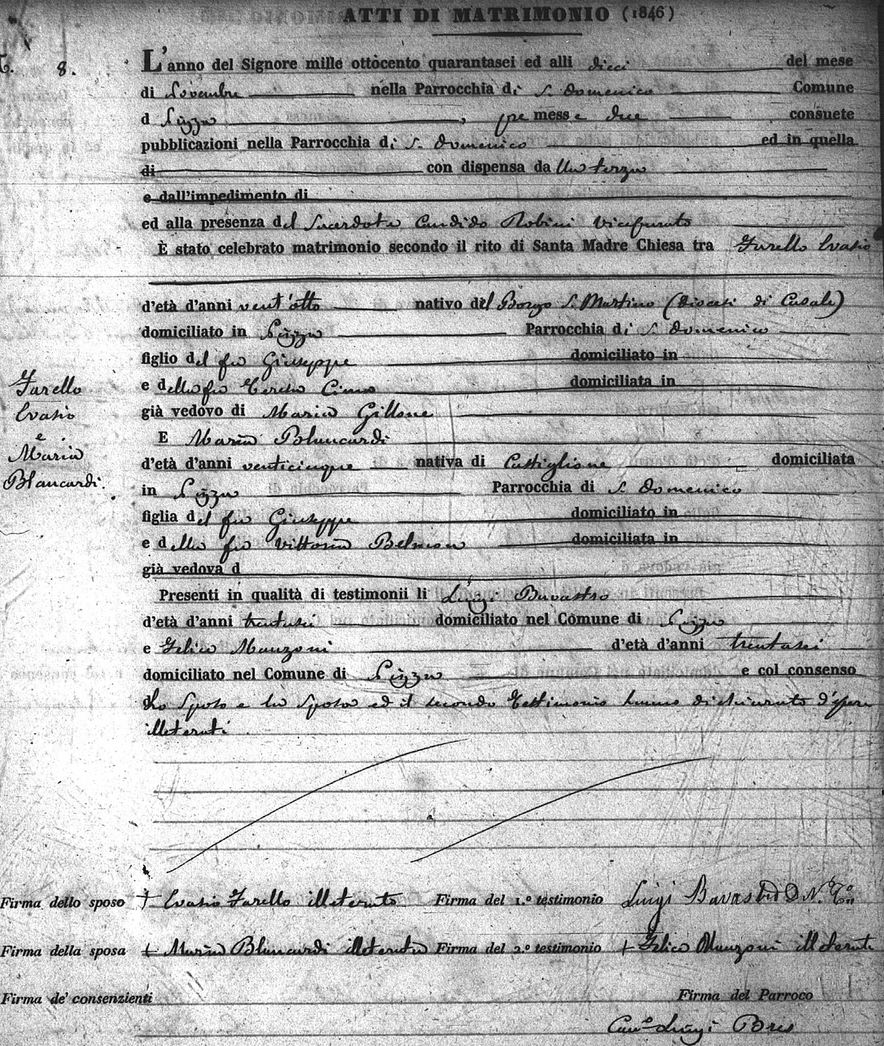 ATTI DI MATRIMONIO (1846)
8.
L'anno del Signore mille ottocento quarantasei ed alli dieci del mese
di Novembre nella Parrocchia di S. Domenico Comune
d Nizza, pre messe due consuete
pubblicazioni nella Parrocchia di S. Domenico ed in quella
di con dispensa da Una terza
e dall'impedimento di
ed alla presenza del Sacerdote Candido Robini Vicecurato
È stato celebrato matrimonio secondo il rito di Santa Madre Chiesa tra Farello Evasio
d'età d'anni vent'otto nativo del Borgo S. Martino (Diocesi di Casale)
domiciliato in Nizza Parrocchia di S. Domenico
figlio del fu Giuseppe domiciliato in
e della fu Teresa domiciliata in
già vedovo di Maria Gillone
E Maria Blancardi
d'età d'anni venticinque nativa di Castiglione domiciliata
in Nizza Parrocchia di S. Domenico
figlia del fu Giuseppe domiciliato in
e della fu Vittoria domiciliata in
già vedova d
Presenti in qualità di testimonii li Luigi Bavastro
d'età d'anni trentasei domiciliato nel Comune di Nizza
e Felice Manzoni d'età d'anni trentasei
domiciliato nel Comune di Nizza e col consenso
Lo Sposo e la Sposa ed il secondo Testimonio hanno dichiarato d'essere
illeterati
Farello
Evasio
e
Maria
Blancardi.
Firma dello sposo + Evasio Farello illeterato Firma del 1.º testimonio Luigi Bavastro
Firma della sposa + Maria Blancardi illeterata Firma del 2.º testimonio + Felice Manzoni illeterato
Firma de' consenzienti Firma del Parroco
Can.co Luigi Bres